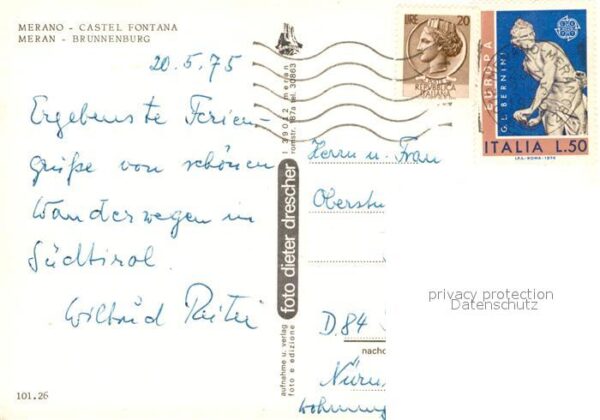 MERANO - CASTEL FONTANA
MERAN - BRUNNENBURG
20.5.75
Ergebenste Ferien-
grüße von schönen
Wanderwegen in
Südtirol.
Wiltrud
101.26
foto dieter drescher
aufnahme u. verlag
foto e edizione
I 39012 meran
romstr. 187a tel. 30863
LIRE 20
REPUBBLICA
ITALIANA
EUROPA
G.L. BERNINI
ITALIA L.50
I.P.S.-ROMA-1974
Herrn u. Frau
Oberstu
D.84
nacho
Nürn
Wohnung
privacy protection
Datenschutz